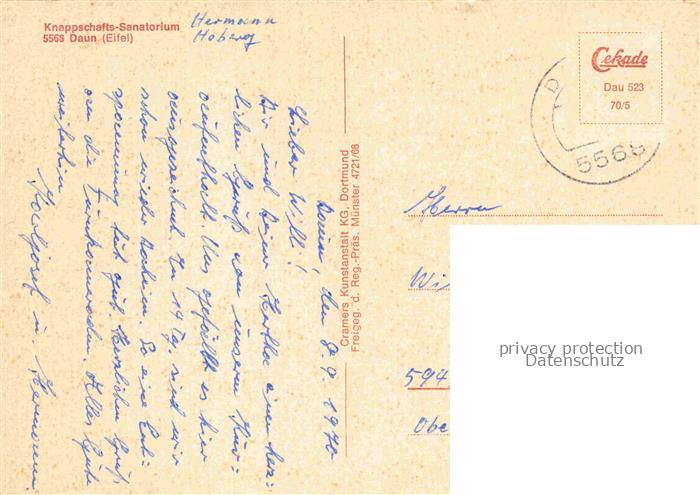 Knappschafts-Sanatorium
5568 Daun (Eifel)
Hermann
Hoberg
Daun, den 8.9.1970
Lieber Willi!
Dir und Deiner Hertha einen herz=
lichen Gruß von unserem Kur=
aufenthalt. Uns gefällt es hier
ausgezeichnet. In 14 Tg. sind wir
schon wieder daheim. So eine Ent=
spannung tut gut. Herzlichen Gruß
an die Turnkameraden. Alles Gute
weiterhin
u. Hermann
Cramers Kunstanstalt KG, Dortmund
Freigeg. d. Reg.-Präs. Münster 4721/68
Cekade
Dau 523
70/5
5568
Herrn
Wil
594
Obe
privacy protection
Datenschutz